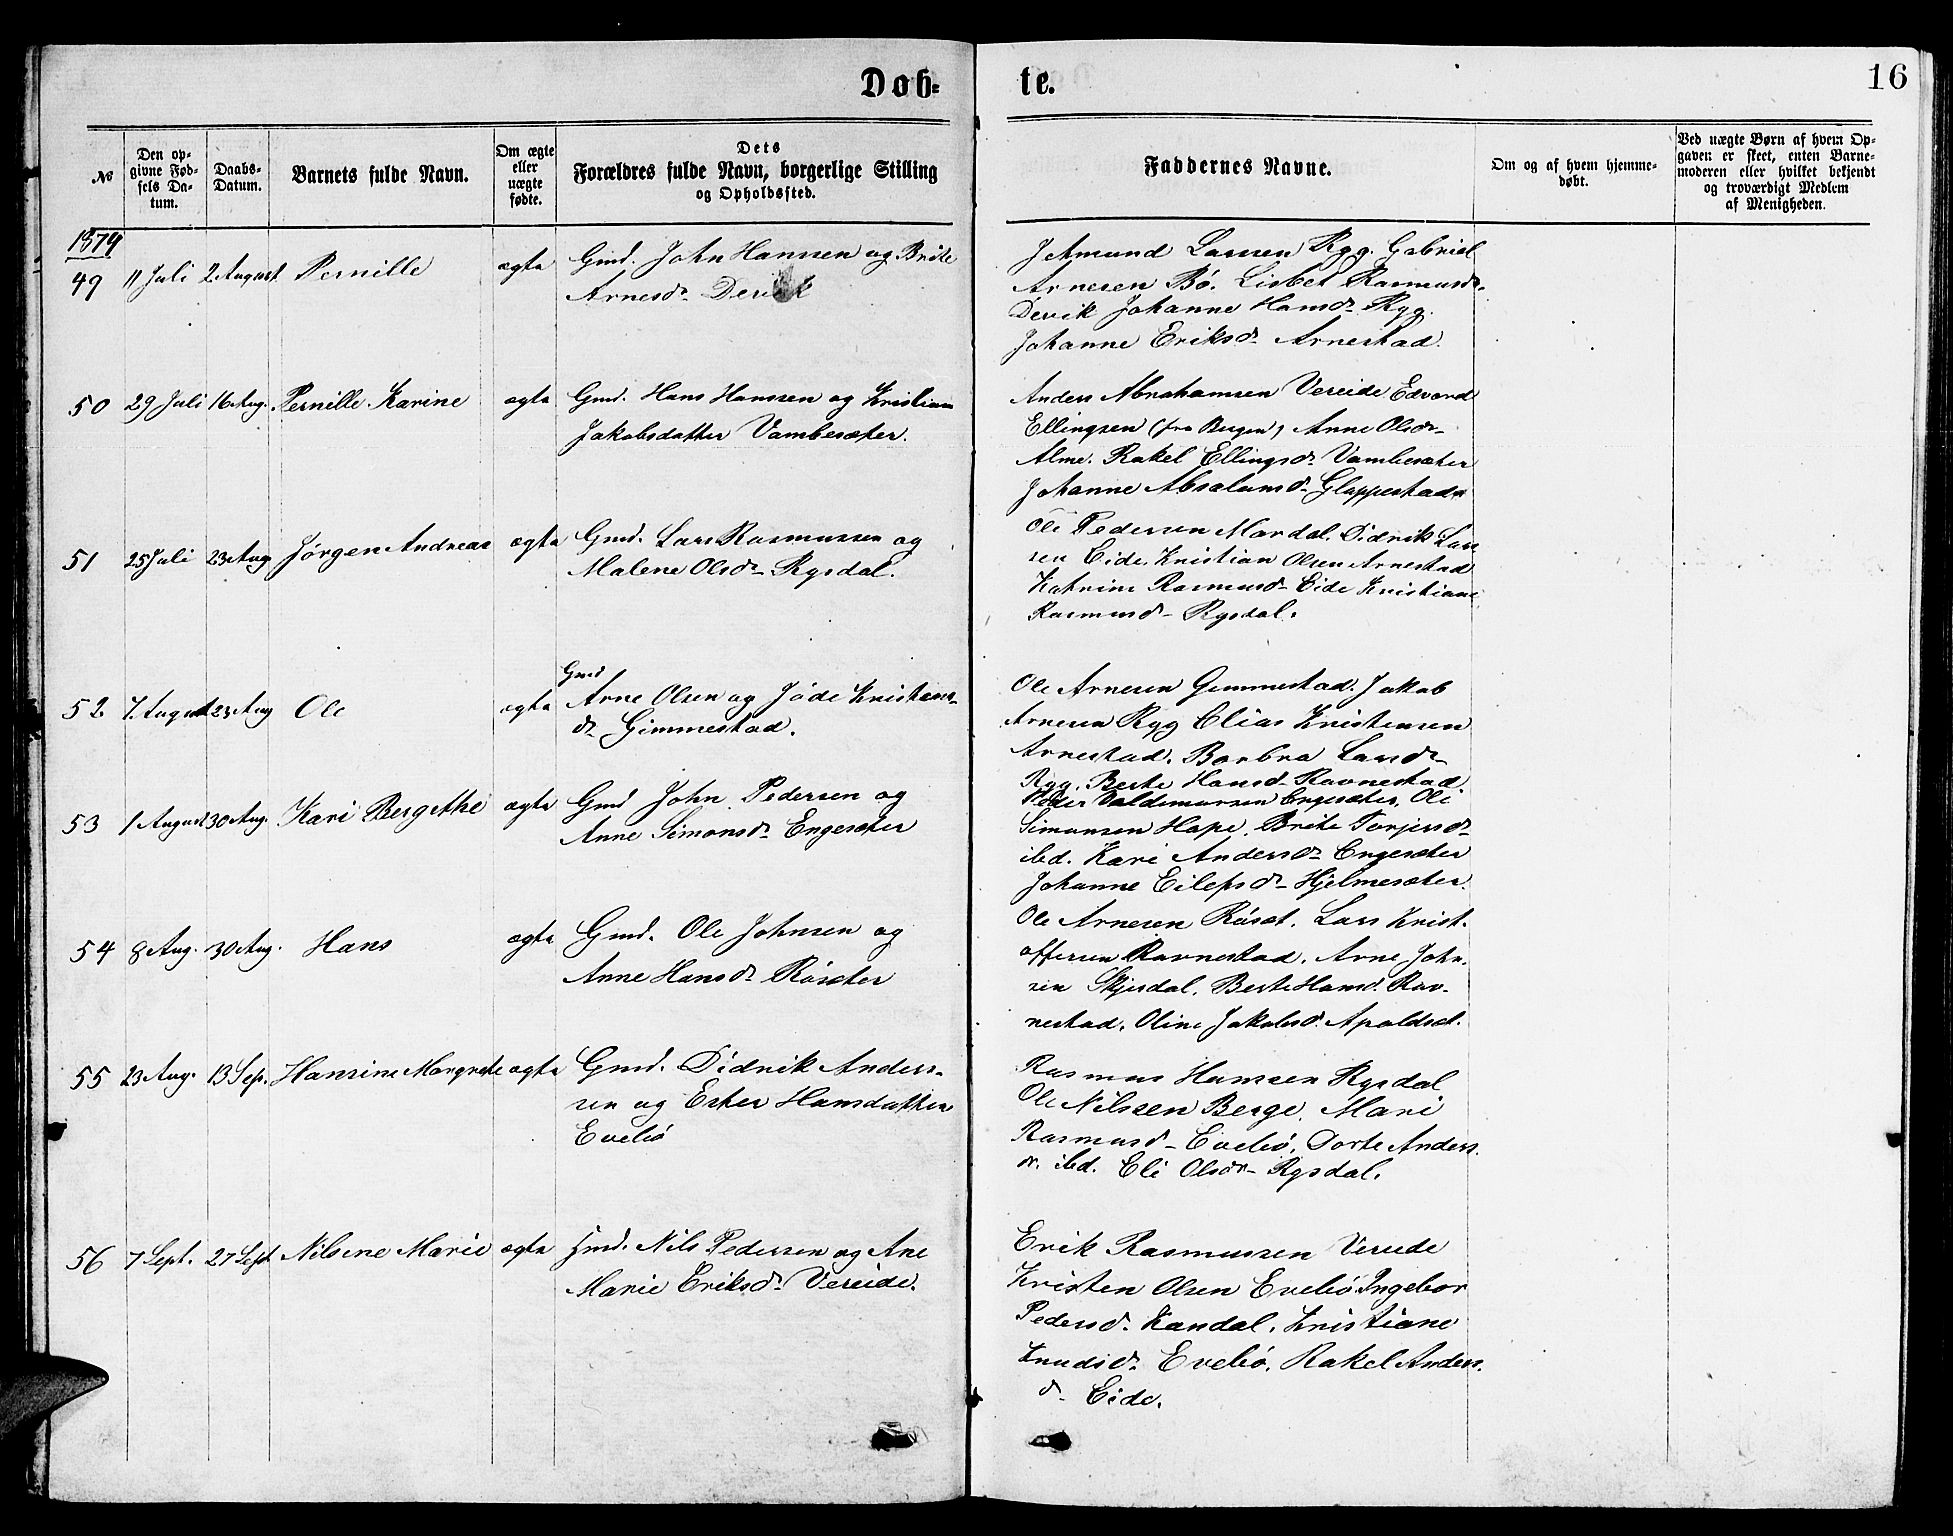 Døb=
te.
16
No
Den op-
givne Fød-
sels Da-
tum.
Daabs-
Datum.
Barnets fulde Navn.
Om ægte
eller
uægte
fødte.
Dets
Forældres fulde Navn, borgerlige Stilling
og Opholdssted.
Faddernes Navne.
Om og af hvem hjemme-
døbt.
Ved uægte Børn af hvem Op-
gaven er skeet, enten Barne-
moderen eller hvilket bekjendt
og troværdigt Medlem
af Menigheden.
1874
49 11 Juli 2 August Pernille ægte Gmd. John Hanssen og Brite
Arnesdr Devik
J Amund Larsen Ryg. Gabriel
Arnesen Bö. Lisbet Rasmusdr
Devik Johanne Hansdr Ryg.
Johanne Eriksdr Arnestad.
50 29 Juli 16 Aug. Pernille Karine ægte Gmd. Hans Hanssen og Kristian
Jakobsdatter Vambesæter.
Anders Abrahamsen Vereide Edvard
Ellingsen (fra Bergen) Anne Olsdr
Alme. Rakel Ellingsdr Vambesæter
Johanne Absalomsdr Gloppestad
51 25 Juli 23 Aug Jörgen Andreas ægte Gmd. Lars Rasmussen og
Malene Olsdr Rysdal.
Ole Pedersen Mardal. Didrik Lars
sen Eide. Kristian Olsen Arnestad
Katrine Rasmusdr Eide Kristiane
Rasmusdr Rysdal.
52 7. August 23 Aug Ole ægte Gmd
Arne Olsen og Jöde Kristens-
dr Gimmestad.
Ole Arnesen Gimmestad. Jakob
Arnesen Ryg Elias Kristensen
Arnestad. Barbra Larsdr
Ryg. Berte Hansd Ravnestad
53 1 August 30 Aug. Kari Bergithe ægte Gmd John Pedersen og
Anne Simonsdr Engesæter
Peder Valdemarsen Engesæter. Ole
Simonsen Hope. Brite Torjersdr
ibd. Kari Andersdr Engesæter
Johanne Eilefsdr Hjelmesæter.
54 8 Aug. 30 Aug. Hans ægte Gmd. Ole Johnsen og
Anne Hansdr Rösæter
Ole Arnesen Rösæt. Lars Krist-
offersen Ravnestad. Arne John-
sen Skjerdal. Berte Hansd. Rav-
nestad. Oline Jakobsd. Apaldsæt.
55 23 Aug. 13 Sep. Hansine Margrete ægte Gmd. Didrik Anders-
sen og Ester Hansdatter
Evebö
Rasmus Hanssen Rysdal
Ole Nilssen Berge. Mari
Rasmusd Evebö. Dorte Anders
dr. ibd. Eli Olsdr Rysdal.
56 7 Sept. 27 Sept Nilsine Marie ægte Hmd. Nils Pedersen og Ane
Marie Eriksdr Vereide.
Erik Rasmussen Vereide
Kristen Olsen Evebö Ingebor
Pedersd. Kandal. Kristiane
Knudsdr Evebö. Rakel Anders.
d Eide.